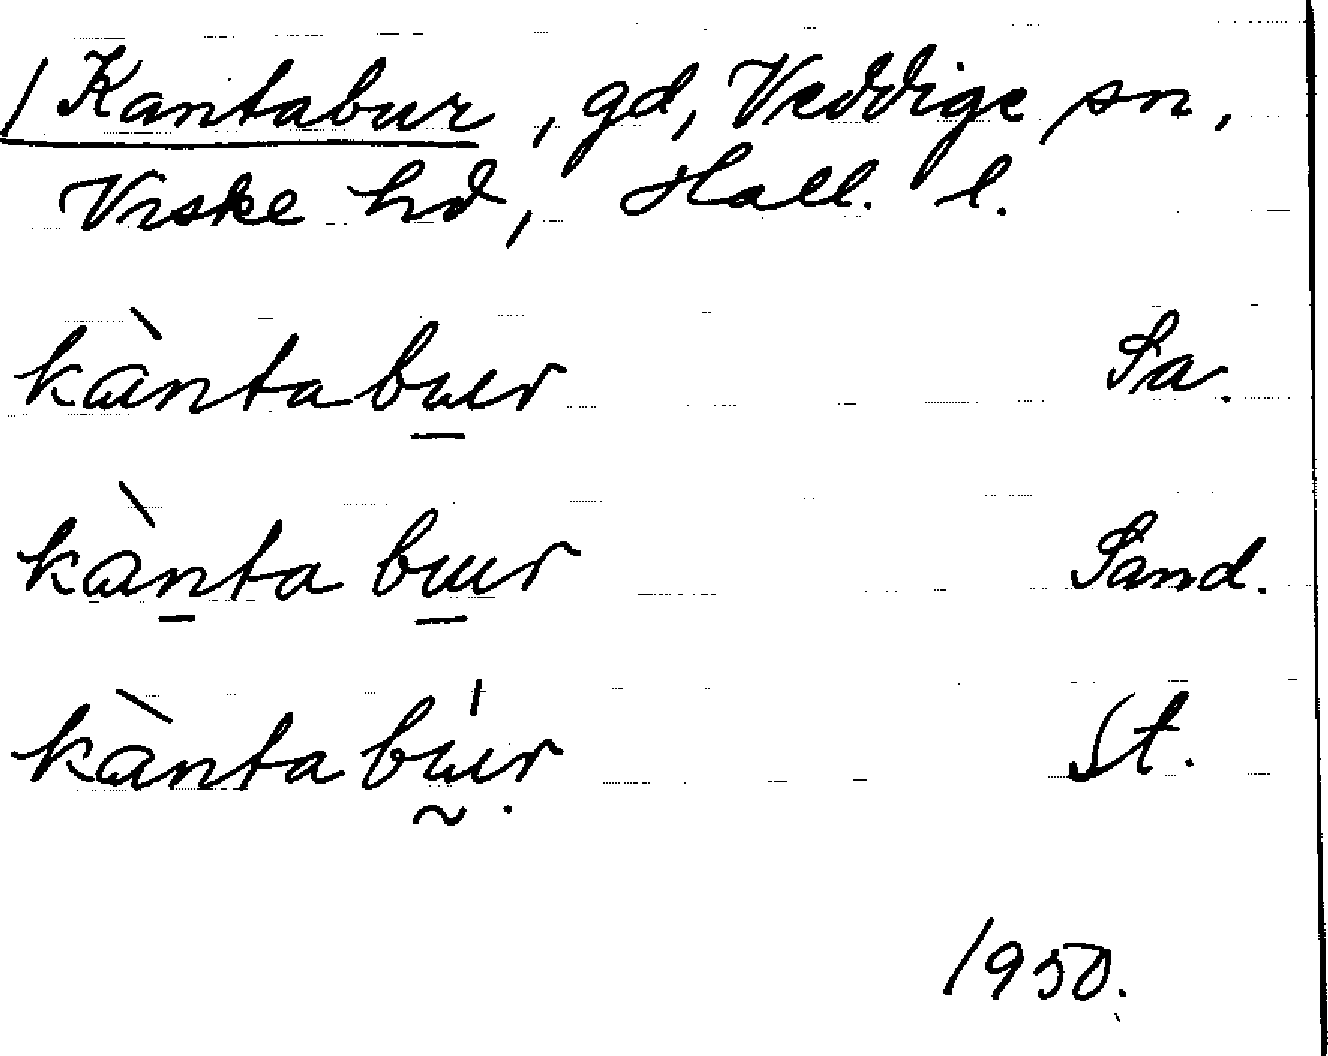 / Kantabur, gd, Veddige sn,
Viske hd, Hall. l.
kàntabu̲r Sa.
kàn̲ta bu̲r Sand.
kàntabṵ́ṛ St.
1950.